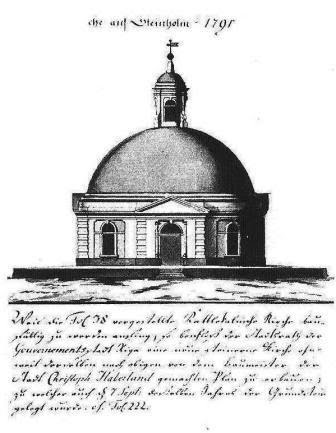 che auf Gleinholm - 1791
Weil die Fol. 38 vorgestellte Kirche bau-
fällig zu werden anfing; so beschloß der Stadtrath der
Gouvernements-Stadt Riga eine neue steinerne Kirche
nach obigen von dem Baumeister der
Stadt Christoph Haberland gemachten Plan zu erbauen,
zu welcher auch d 7 Sept: desselben Jahres der Grundstein
gelegt wurde. cf. Fol. 222.